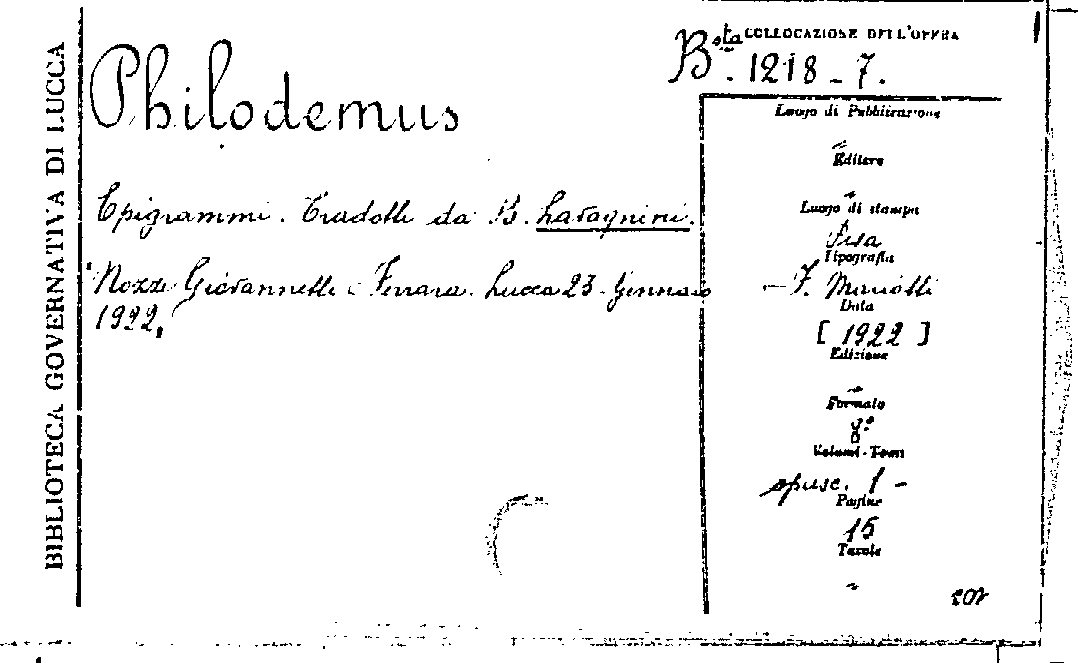 BIBLIOTECA GOVERNATIVA DI LUCCA
Philodemus
Epigrammi. Tradotti da B. Lavagnini.
Nozze Giovannetti - Ferrara. Lucca 23. Gennaio
1922.
COLLOCAZIONE DELL'OPERA
Bsta. 1218 - 7.
Luogo di Pubblicazione
Editore
Luogo di stampa
Pisa
Tipografia
F. Mariotti
Data
[1922]
Edizione
Formato
8°
Volumi - Tomi
opusc. 1 -
Pagine
15
Tavole